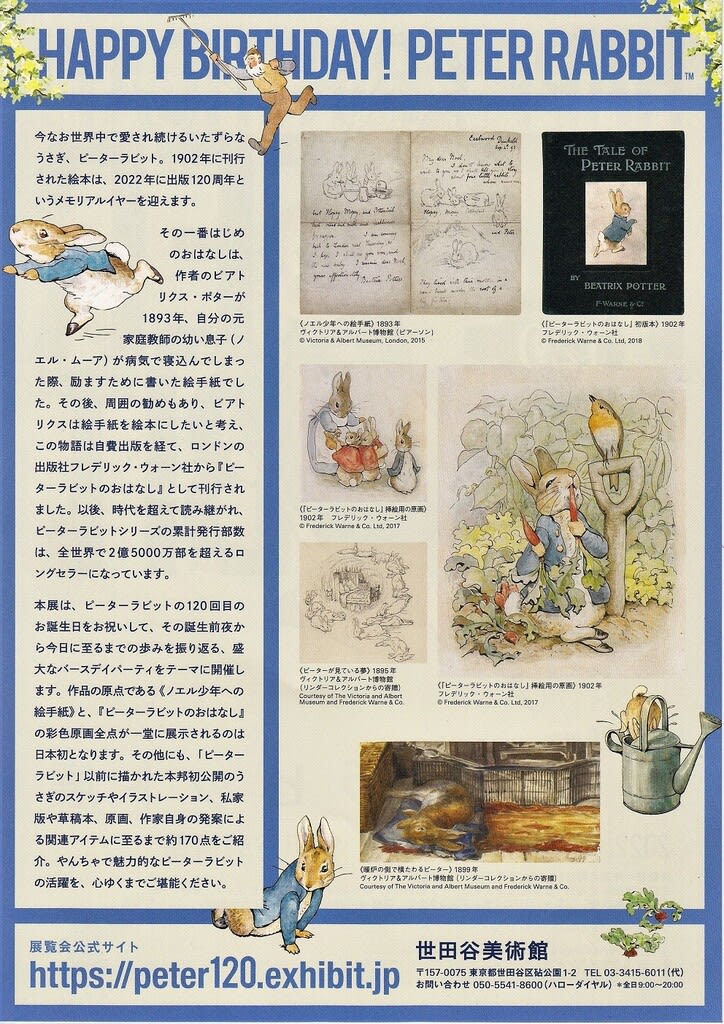 HAPPY BIRTHDAY! PETER RABBIT™
今なお世界中で愛され続けるいたずらな
うさぎ、ピーターラビット。1902年に刊行
された絵本は、2022年に出版120周年と
いうメモリアルイヤーを迎えます。
その一番はじめ
のおはなしは、
作者のビアト
リクス・ポターが
1893年、自分の元
家庭教師の幼い息子（ノ
エル・ムーア）が病気で寝込んでしまっ
た際、励ますために書いた絵手紙でし
た。その後、周囲の勧めもあり、ビアト
リクスは絵手紙を絵本にしたいと考え、
この物語は自費出版を経て、ロンドンの
出版社フレデリック・ウォーン社から『ピー
ターラビットのおはなし』として刊行され
ました。以後、時代を超えて読み継がれ、
ピーターラビットシリーズの累計発行部数
は、全世界で2億5000万部を超えるロ
ングセラーになっています。
本展は、ピーターラビットの120回目の
お誕生日をお祝いして、その誕生前夜か
ら今日に至るまでの歩みを振り返る、盛
大なバースデイパーティをテーマに開催し
ます。作品の原点である《ノエル少年への
絵手紙》と、『ピーターラビットのおはなし』
の彩色原画全点が一堂に展示されるのは
日本初となります。その他にも、「ピーター
ラビット」以前に描かれた本邦初公開のう
さぎのスケッチやイラストレーション、私家
版や草稿本、原画、作家自身の発案によ
る関連アイテムに至るまで約170点をご紹
介。やんちゃで魅力的なピーターラビット
の活躍を、心ゆくまでご堪能ください。
Eastwood Dunkeld
My dear Noel,
Beatrix Potter
《ノエル少年への絵手紙》1893年
ヴィクトリア＆アルバート博物館（ピアーソン）
© Victoria & Albert Museum, London, 2015
THE TALE OF
PETER RABBIT
BY
BEATRIX POTTER
F. WARNE & Co
《『ピーターラビットのおはなし』初版本》1902年
フレデリック・ウォーン社
© Frederick Warne & Co. Ltd, 2018
《『ピーターラビットのおはなし』挿絵用の原画》
1902年 フレデリック・ウォーン社
© Frederick Warne & Co. Ltd, 2017
《ピーターが見ている夢》1895年
ヴィクトリア＆アルバート博物館
（リンダーコレクションからの寄贈）
Courtesy of The Victoria and Albert
Museum and Frederick Warne & Co.
《『ピーターラビットのおはなし』挿絵用の原画》1902年
フレデリック・ウォーン社
© Frederick Warne & Co. Ltd, 2017
《暖炉の側で横たわるピーター》1899年
ヴィクトリア＆アルバート博物館（リンダーコレクションからの寄贈）
Courtesy of The Victoria and Albert Museum and Frederick Warne & Co.
展覧会公式サイト
https://peter120.exhibit.jp
世田谷美術館
〒157-0075 東京都世田谷区砧公園1-2 TEL 03-3415-6011（代）
お問い合わせ 050-5541-8600（ハローダイヤル）＊全日9:00〜20:00